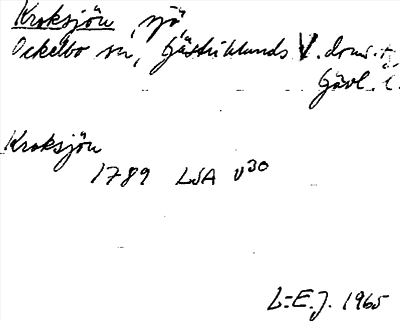 Kroksjön, sjö,
Ockelbo sn, Gästriklands V. doms.,
Gävl. l.
Kroksjön
1789 LSA V30
L-E.J. 1965